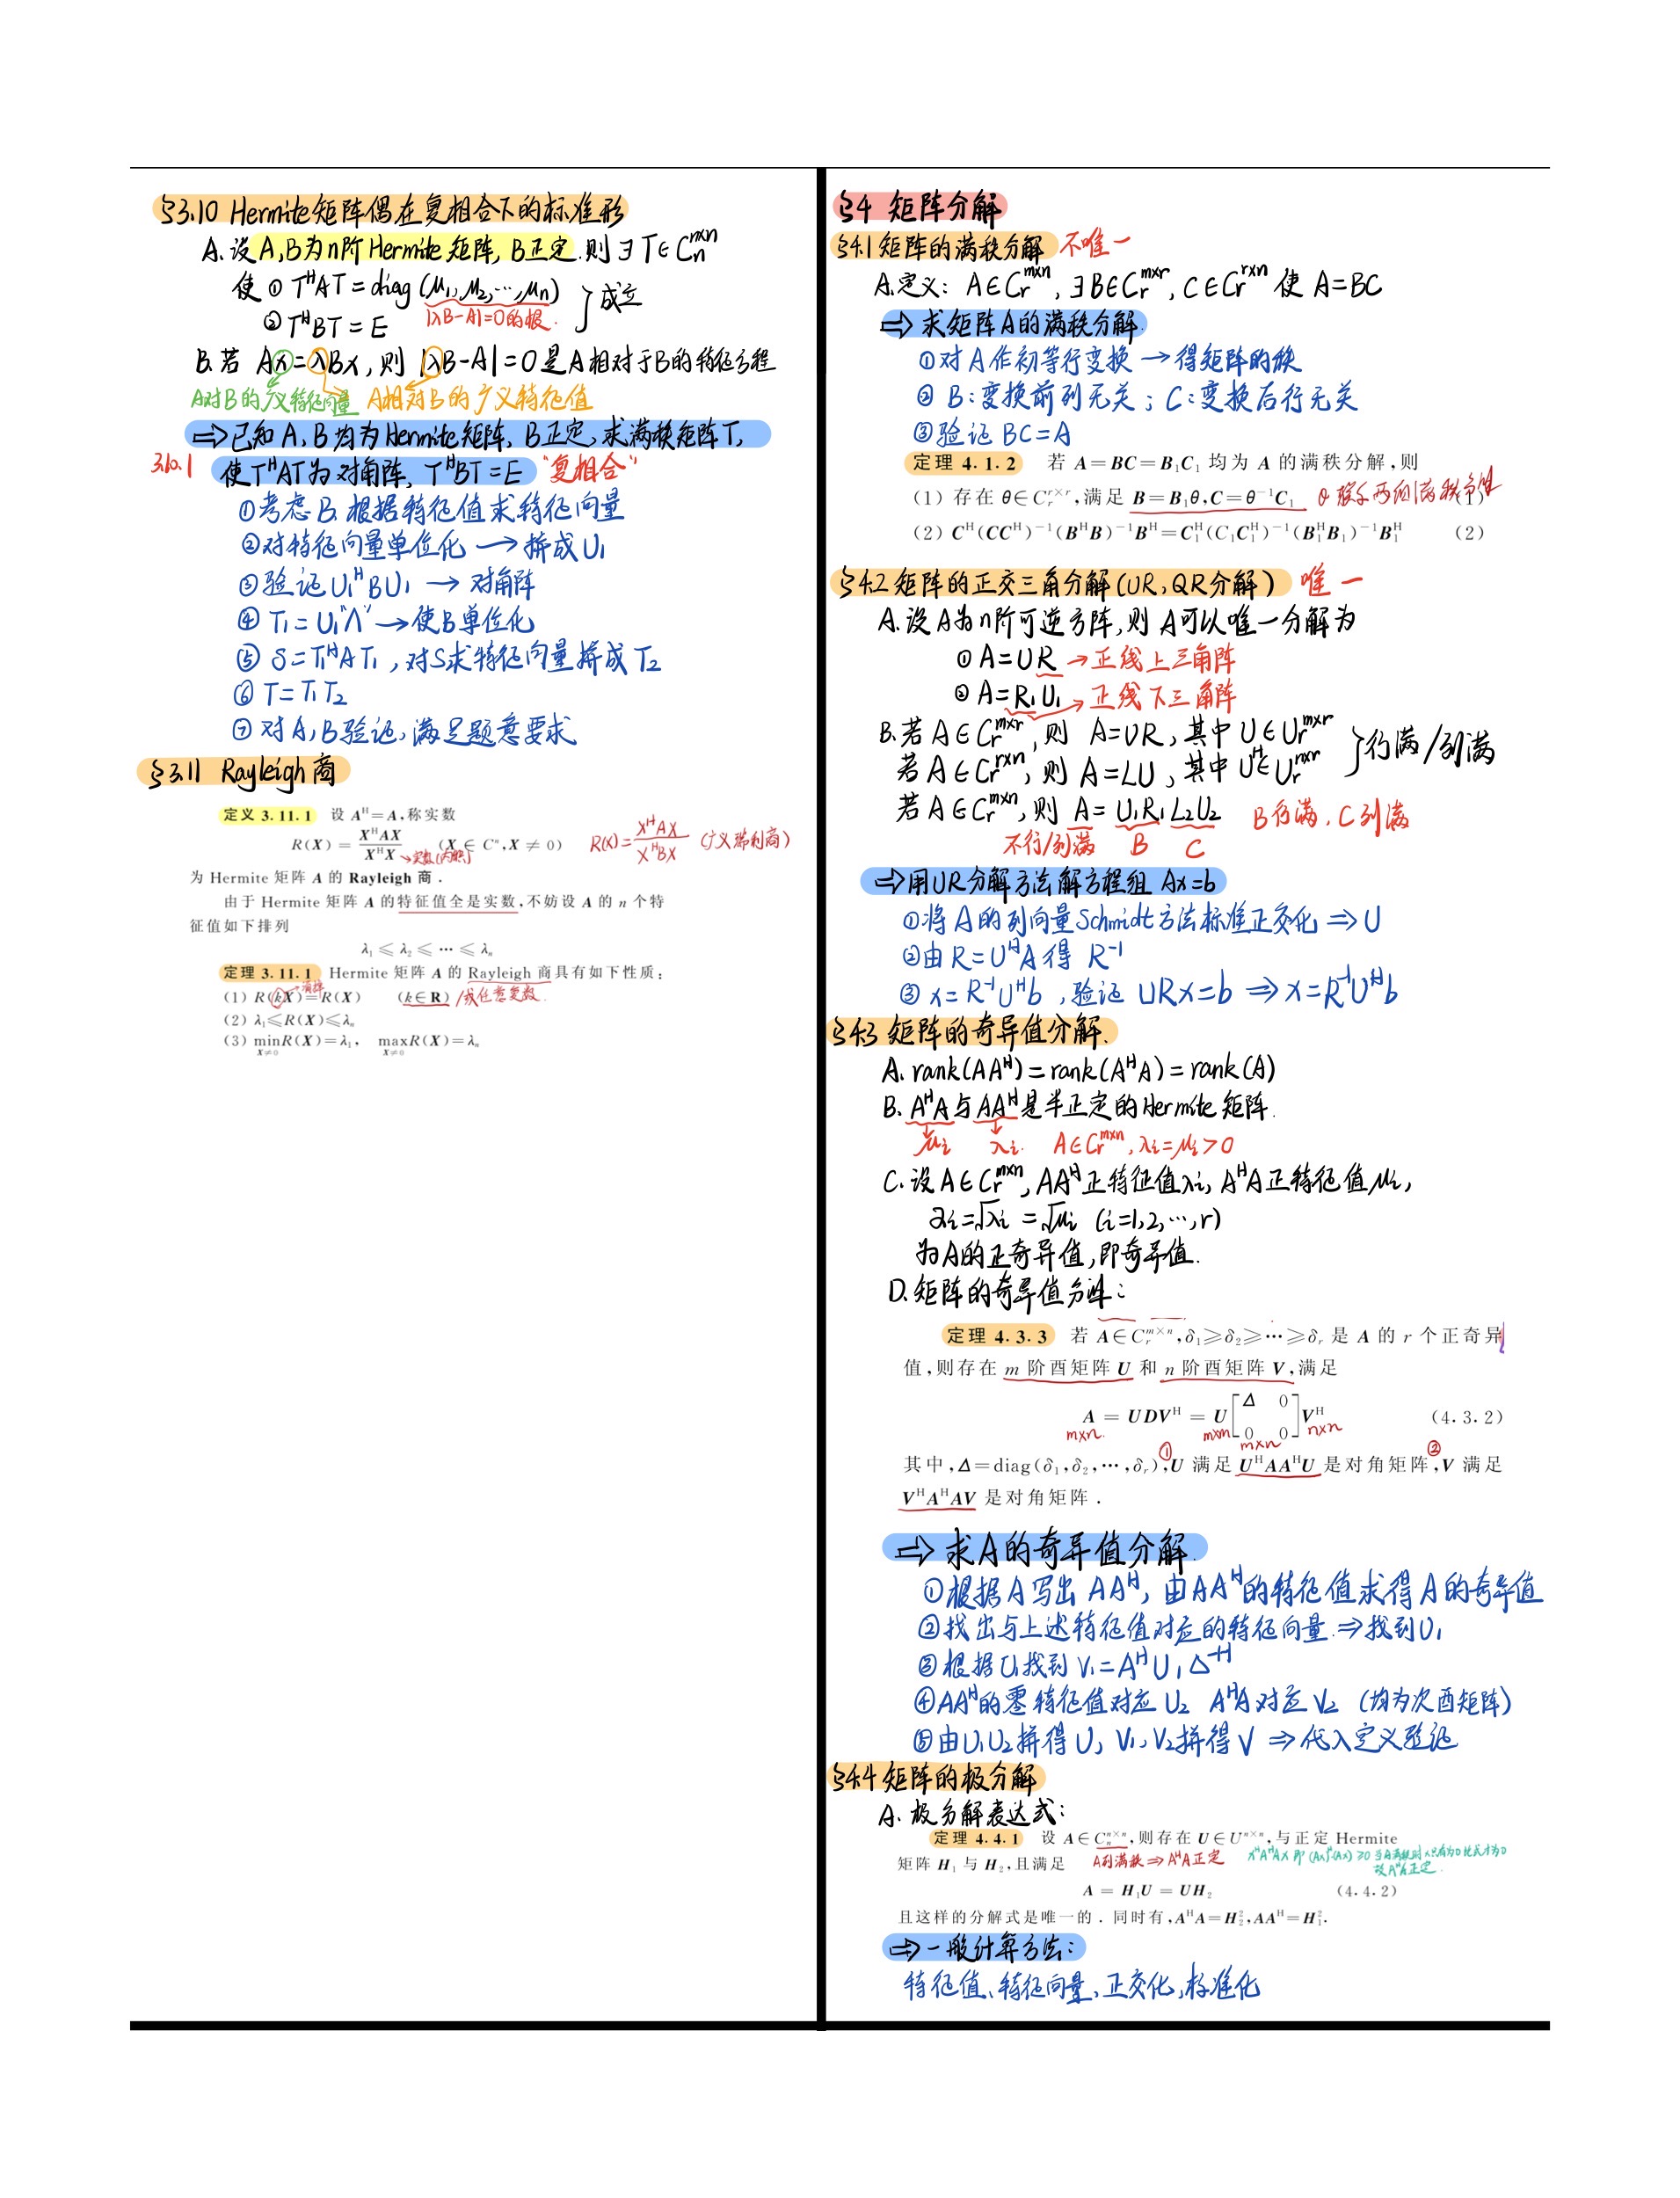 §3.10 Hermite矩阵偶在复相合下的标准形
A. 设A,B为n阶Hermite矩阵, B正定.则∃T∈Cₙⁿˣⁿ
使 ① TᴴAT=diag(μ₁,μ₂,…,μₙ)
② TᴴBT=E |λB-A|=0的根. }成立
B. 若 Ax=λBx, 则 |λB-A|=0是A相对于B的特征方程
A对B的广义特征向量 A相对B的广义特征值
⇒已知A,B均为Hermite矩阵, B正定,求满秩矩阵T,
3.10.1 使TᴴAT为对角阵, TᴴBT=E "复相合"
①考虑B.根据特征值求特征向量
②对特征向量单位化→拼成U₁
③验证U₁ᴴBU₁→对角阵
④T₁=U₁"Λ"→使B单位化
⑤S=T₁ᴴAT₁,对S求特征向量拼成T₂
⑥T=T₁T₂
⑦对A,B验证,满足题意要求
§3.11 Rayleigh商
定义 3.11.1 设 Aᴴ=A,称实数
R(X) = XᴴAX / XᴴX (X ∈ Cⁿ,X ≠ 0) R(X)=XᴴAX / XᴴBX (广义瑞利商)
→实数(内积)
为 Hermite 矩阵 A 的 Rayleigh 商.
由于 Hermite 矩阵 A 的特征值全是实数,不妨设 A 的 n 个特
征值如下排列
λ₁ ≤ λ₂ ≤ … ≤ λₙ
定理 3.11.1 Hermite 矩阵 A 的 Rayleigh 商具有如下性质:
(1) R(kX)=R(X) (k∈R) /或任意复数.
(2) λ₁≤R(X)≤λₙ
(3) minR(X)=λ₁, maxR(X)=λₙ
X≠0 X≠0
§4 矩阵分解
§4.1矩阵的满秩分解 不唯一
A.定义: A∈Cᵣᵐˣⁿ,∃B∈Cᵣᵐˣʳ,C∈Cᵣʳˣⁿ 使 A=BC
⇒求矩阵A的满秩分解.
①对A作初等行变换→得矩阵的秩
② B:变换前列无关;C:变换后行无关
③验证BC=A
定理 4.1.2 若 A=BC=B₁C₁ 均为 A 的满秩分解,则
(1) 存在 θ∈Cᵣʳˣʳ,满足 B=B₁θ,C=θ⁻¹C₁ (1)
(2) Cᴴ(CCᴴ)⁻¹(BᴴB)⁻¹Bᴴ=C₁ᴴ(C₁C₁ᴴ)⁻¹(B₁ᴴB₁)⁻¹B₁ᴴ (2)
§4.2矩阵的正交三角分解(UR,QR分解) 唯一
A.设A为n阶可逆方阵,则A可以唯一分解为
① A=UR→正线上三角阵
② A=R₁U₁→正线下三角阵
B.若A∈Cᵣᵐˣʳ,则 A=UR,其中U∈Uᵣᵐˣʳ
若A∈Cᵣʳˣⁿ,则 A=LU,其中Uᴴ∈Uᵣⁿˣʳ }行满/列满
若A∈Cᵣᵐˣⁿ,则 A=U₁R₁L₂U₂ B行满,C列满
不行/列满 B C
⇒用UR分解方法解方程组 Ax=b
①将A的列向量Schmidt方法标准正交化⇒U
②由R=UᴴA得 R⁻¹
③x=R⁻¹Uᴴb,验证URx=b⇒x=R⁻¹Uᴴb
§4.3 矩阵的奇异值分解.
A. rank(AAᴴ)=rank(AᴴA)=rank(A)
B. AᴴA与AAᴴ是半正定的Hermite矩阵.
μᵢ λᵢ. A∈Cᵣᵐˣⁿ,λᵢ=μᵢ>0
C.设A∈Cᵣᵐˣⁿ,AAᴴ正特征值λᵢ,AᴴA正特征值μᵢ,
αᵢ=√λᵢ=√μᵢ (i=1,2,…,r)
为A的正奇异值,即奇异值.
D.矩阵的奇异值分解:
定理 4.3.3 若 A∈Cᵣᵐˣⁿ,δ₁≥δ₂≥…≥δᵣ 是 A 的 r 个正奇异
值,则存在 m 阶酉矩阵 U 和 n 阶酉矩阵 V,满足
A = UDVᴴ = U[Δ 0; 0 0]Vᴴ (4.3.2)
m×n. m×m m×n n×n
其中,Δ=diag(δ₁,δ₂,…,δᵣ),①U 满足 UᴴAAᴴU 是对角矩阵,②V 满足
VᴴAᴴAV 是对角矩阵.
⇒求A的奇异值分解.
①根据A写出AAᴴ,由AAᴴ的特征值求得A的奇异值
②找出与上述特征值对应的特征向量.⇒找到U₁
③根据U₁找到V₁=AᴴU₁Δ⁻ᴴ
④AAᴴ的零特征值对应U₂ AᴴA对应V₂ (均为次酉矩阵)
⑤由U₁U₂拼得U,V₁,V₂拼得V⇒代入定义验证
§4.4矩阵的极分解
A.极分解表达式:
定理 4.4.1 设 A∈Cₙⁿˣⁿ,则存在 U∈Uⁿˣⁿ,与正定 Hermite
矩阵 H₁ 与 H₂,且满足 A列满秩⇒AᴴA正定 xᴴAᴴAx 即(Ax)ᴴ(Ax)≥0 当A满秩时x只有为0此式才为0
故AᴴA正定.
A = H₁U = UH₂ (4.4.2)
且这样的分解式是唯一的.同时有,AᴴA=H₂²,AAᴴ=H₁².
⇒一般计算方法:
特征值、特征向量、正交化,标准化